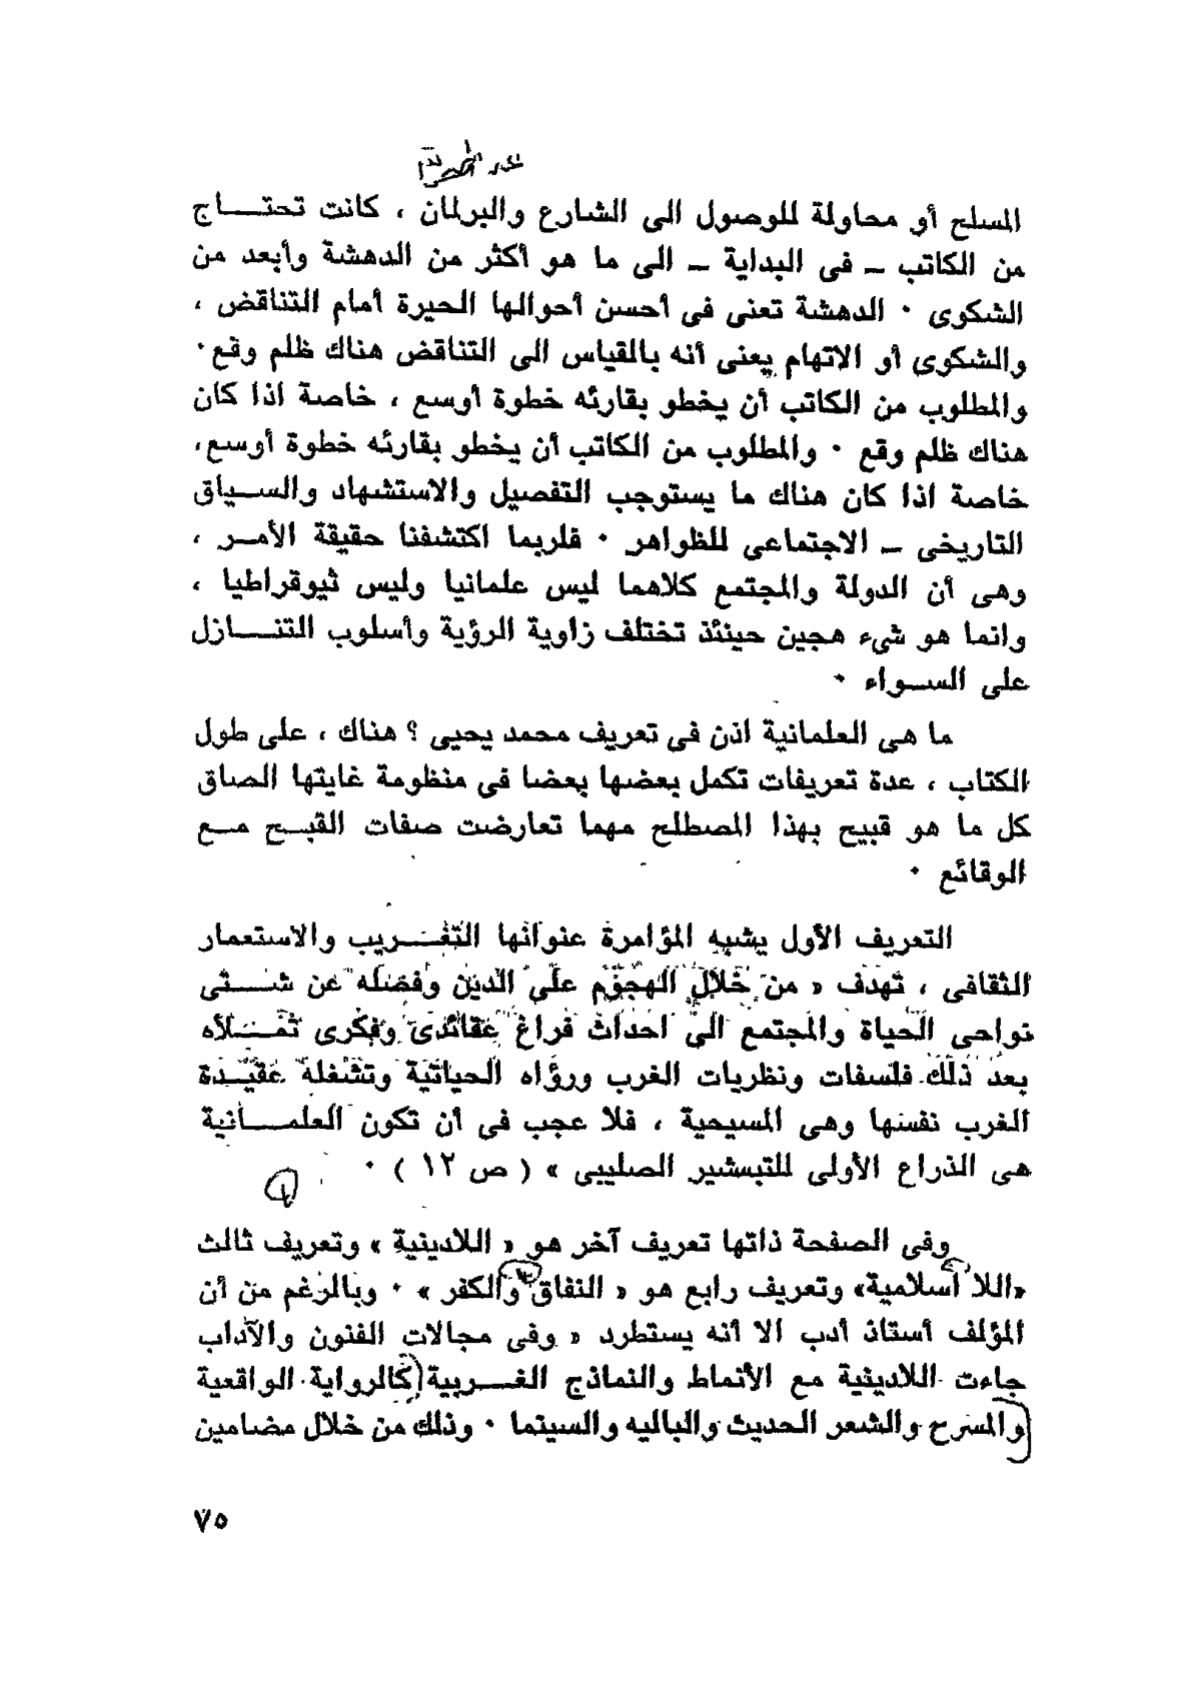 المسلح أو محاولة للوصول الى الشارع والبرلمان ، كانت تحتــــاج
من الكاتب ــ فى البداية ــ الى ما هو أكثر من الدهشة وأبعد من
الشكوى ٠ الدهشة تعنى فى أحسن أحوالها الحيرة أمام التناقض ،
والشكوى أو الاتهام يعنى أنه بالقياس الى التناقض هناك ظلم وقع ٠
والمطلوب من الكاتب أن يخطو بقارئه خطوة أوسع ، خاصة اذا كان
هناك ظلم وقع ٠ والمطلوب من الكاتب أن يخطو بقارئه خطوة أوسع،
خاصة اذا كان هناك ما يستوجب التفصيل والاستشهاد والســياق
التاريخى ــ الاجتماعى للظواهر ٠ فلربما اكتشفنا حقيقة الأمــر ،
وهى أن الدولة والمجتمع كلاهما ليس علمانيا وليس ثيوقراطيا ،
وانما هو شىء هجين حينئذ تختلف زاوية الرؤية وأسلوب التنــــازل
على الســواء ٠
ما هى العلمانية اذن فى تعريف محمد يحيى ؟ هناك ، على طول
الكتاب ، عدة تعريفات تكمل بعضها بعضا فى منظومة غايتها الصاق
كل ما هو قبيح بهذا المصطلح مهما تعارضت صفات القبــح مــع
الوقائع ٠
التعريف الأول يشبه المؤامرة عنوانها التغــــريب والاستعمار
الثقافى ، تهدف « من خلال الهجوم على الدين وفصله عن شـــتى
نواحى الحياة والمجتمع الى احداث فراغ عقائدى وفكرى تمــــلأه
بعد ذلك فلسفات ونظريات الغرب ورؤاه الحياتية وتشغله عقيــدة
الغرب نفسها وهى المسيحية ، فلا عجب فى أن تكون العلمــــانية
هى الذراع الأولى للتبشير الصليبى » ( ص ١٢ ) ٠
وفى الصفحة ذاتها تعريف آخر هو « اللادينية » وتعريف ثالث
«اللا اسلامية» وتعريف رابع هو « النفاق والكفر » ٠ وبالرغم من أن
المؤلف أستاذ أدب الا أنه يستطرد « وفى مجالات الفنون والآداب
جاءت اللادينية مع الأنماط والنماذج الغــــربية كالرواية الواقعية
والمسرح والشعر الحديث والباليه والسينما ٠ وذلك من خلال مضامين
٧٥